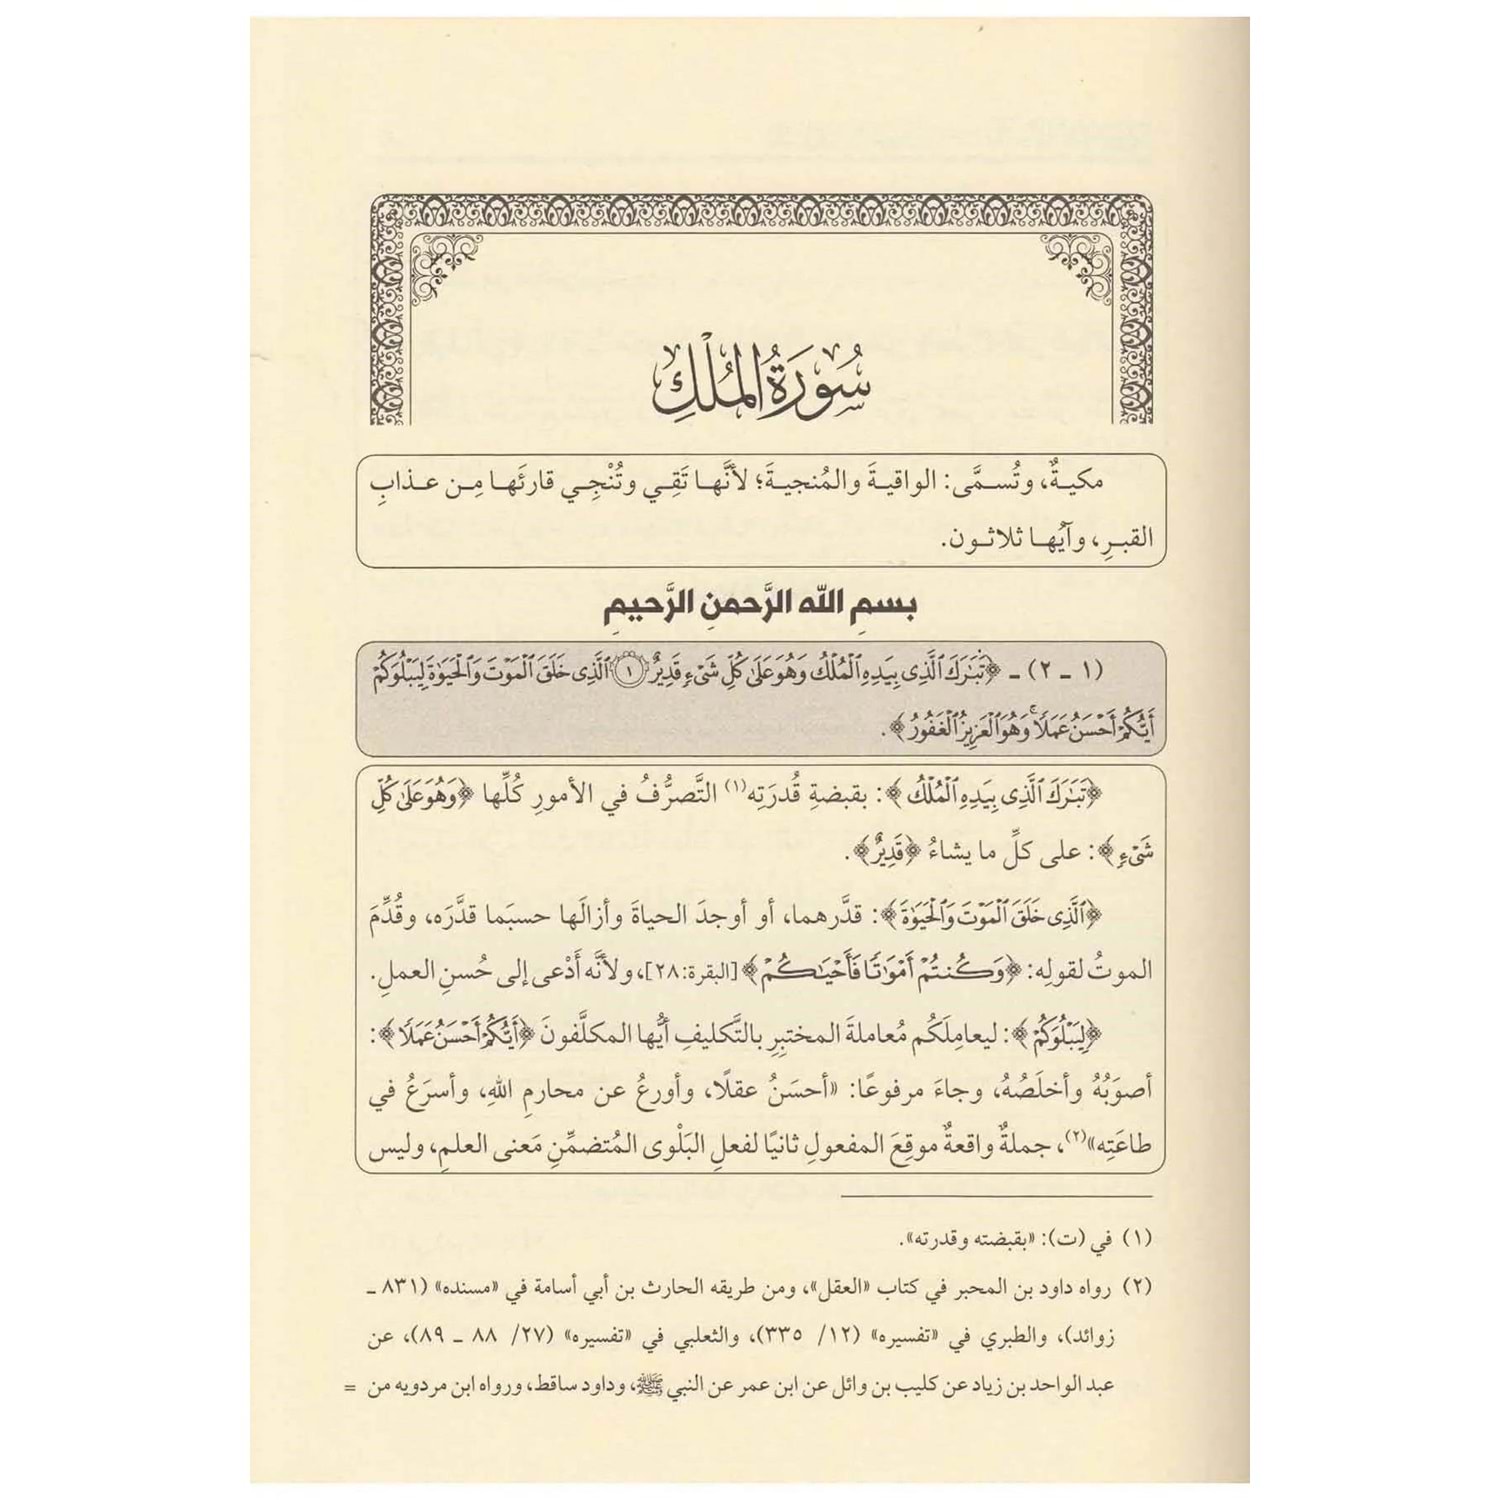 سُورَةُ المُلْكِ
مكيةٌ، وتُسمَّى: الواقيةَ والمُنجيةَ؛ لأنَّها تَقِي وتُنْجِي قارئَها مِن عذابِ
القبرِ، وآيُها ثلاثون.
بسمِ اللهِ الرَّحمنِ الرَّحيمِ
(١ ـ ٢) ـ ﴿تَبَٰرَكَ ٱلَّذِى بِيَدِهِ ٱلْمُلْكُ وَهُوَ عَلَىٰ كُلِّ شَىْءٍ قَدِيرٌ ۝١ ٱلَّذِى خَلَقَ ٱلْمَوْتَ وَٱلْحَيَوٰةَ لِيَبْلُوَكُمْ
أَيُّكُمْ أَحْسَنُ عَمَلًا ۚ وَهُوَ ٱلْعَزِيزُ ٱلْغَفُورُ﴾.
﴿تَبَٰرَكَ ٱلَّذِى بِيَدِهِ ٱلْمُلْكُ﴾: بقبضةِ قُدرَتِه(١) التَّصرُّفُ في الأمورِ كُلِّها ﴿وَهُوَ عَلَىٰ كُلِّ
شَىْءٍ﴾: على كلِّ ما يشاءُ ﴿قَدِيرٌ﴾.
﴿ٱلَّذِى خَلَقَ ٱلْمَوْتَ وَٱلْحَيَوٰةَ﴾: قدَّرهما، أو أوجدَ الحياةَ وأزالَها حسبَما قدَّرَه، وقُدِّمَ
الموتُ لقولِه: ﴿وَكُنتُمْ أَمْوَٰتًا فَأَحْيَٰكُمْ﴾ [البقرة: ٢٨]، ولأنَّه أَدْعى إلى حُسنِ العملِ.
﴿لِيَبْلُوَكُمْ﴾: ليعامِلَكُم مُعاملةَ المختبِرِ بالتَّكليفِ أيُّها المكلَّفونَ ﴿أَيُّكُمْ أَحْسَنُ عَمَلًا﴾:
أصوَبُهُ وأخلَصُهُ، وجاءَ مرفوعًا: «أحسَنُ عقلًا، وأورعُ عن محارمِ اللهِ، وأسرَعُ في
طاعَتِه»(٢)، جملةٌ واقعةٌ موقِعَ المفعولِ ثانيًا لفعلِ البَلْوى المُتضمِّنِ مَعنى العلمِ، وليس
(١) في (ت): «بقبضته وقدرته».
(٢) رواه داود بن المحبر في كتاب «العقل»، ومن طريقه الحارث بن أبي أسامة في «مسنده» (٨٣١ ـ
زوائد)، والطبري في «تفسيره» (١٢/ ٣٣٥)، والثعلبي في «تفسيره» (٢٧/ ٨٨ ـ ٨٩)، عن
عبد الواحد بن زياد عن كليب بن وائل عن ابن عمر عن النبي ﷺ، وداود ساقط، ورواه ابن مردويه من =